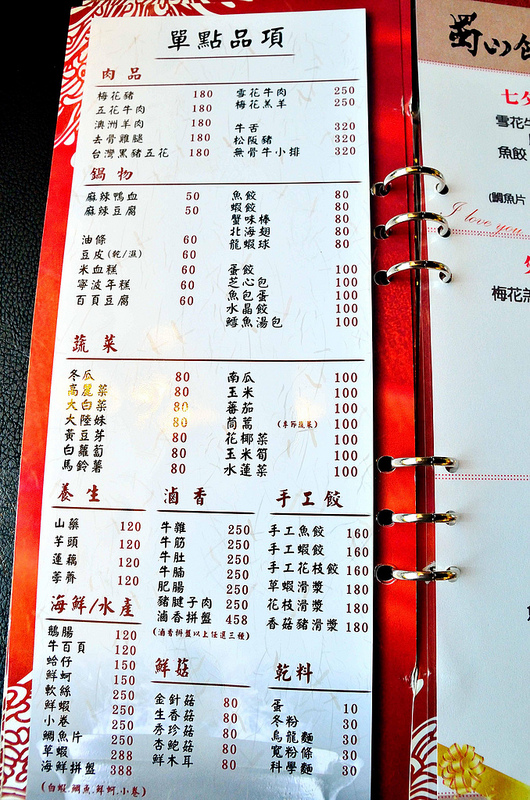 單點品項
肉品
梅花豬 180
五花牛肉 180
澳洲羊肉 180
去骨雞腿 180
台灣黑豬五花 180
雪花牛肉 250
梅花羔羊 250
牛舌 320
松阪豬 320
無骨牛小排 320
鍋物
麻辣鴨血 50
麻辣豆腐 50
油條 60
豆皮(乾/濕) 60
米血糕 60
寧波年糕 60
百頁豆腐 60
魚餃 80
蝦餃 80
蟹味棒 80
北海翅 80
龍蝦球 80
蛋餃 100
芝心包 100
魚包蛋 100
水晶餃 100
鱈魚湯包 100
蔬菜
冬瓜 80
高麗菜 80
大白菜 80
大陸妹 80
黃豆芽 80
白蘿蔔 80
馬鈴薯 80
南瓜 100
玉米 100
蕃茄 100
茼蒿 (季節蔬菜) 100
花椰菜 100
玉米筍 100
水蓮菜 100
養生
山藥 120
芋頭 120
蓮藕 120
荸薺 120
滷香
牛雜 250
牛筋 250
牛肚 250
牛腩 250
肥腸 250
豬腱子肉 250
滷香拼盤 458
(滷香拼盤以上任選三種)
手工餃
手工魚餃 160
手工蝦餃 160
手工花枝餃 160
草蝦滑漿 180
花枝滑漿 180
香菇豬滑漿 180
海鮮/水產
鵝腸 120
牛百頁 120
蛤仔 150
鮮蚵 150
軟絲 250
鮮蝦 250
小卷 250
鯛魚片 250
草蝦 288
海鮮拼盤 388
(白蝦.鯛魚.鮮蚵.小卷)
鮮菇
金針菇 80
生香菇 80
秀珍菇 80
杏鮑菇 80
鮮木耳 80
乾料
蛋 10
冬粉 30
烏龍麵 30
寬粉條 30
科學麵 30
蜀川
七夕
雪花牛
魚餃
(鯛魚片
I love you
梅花